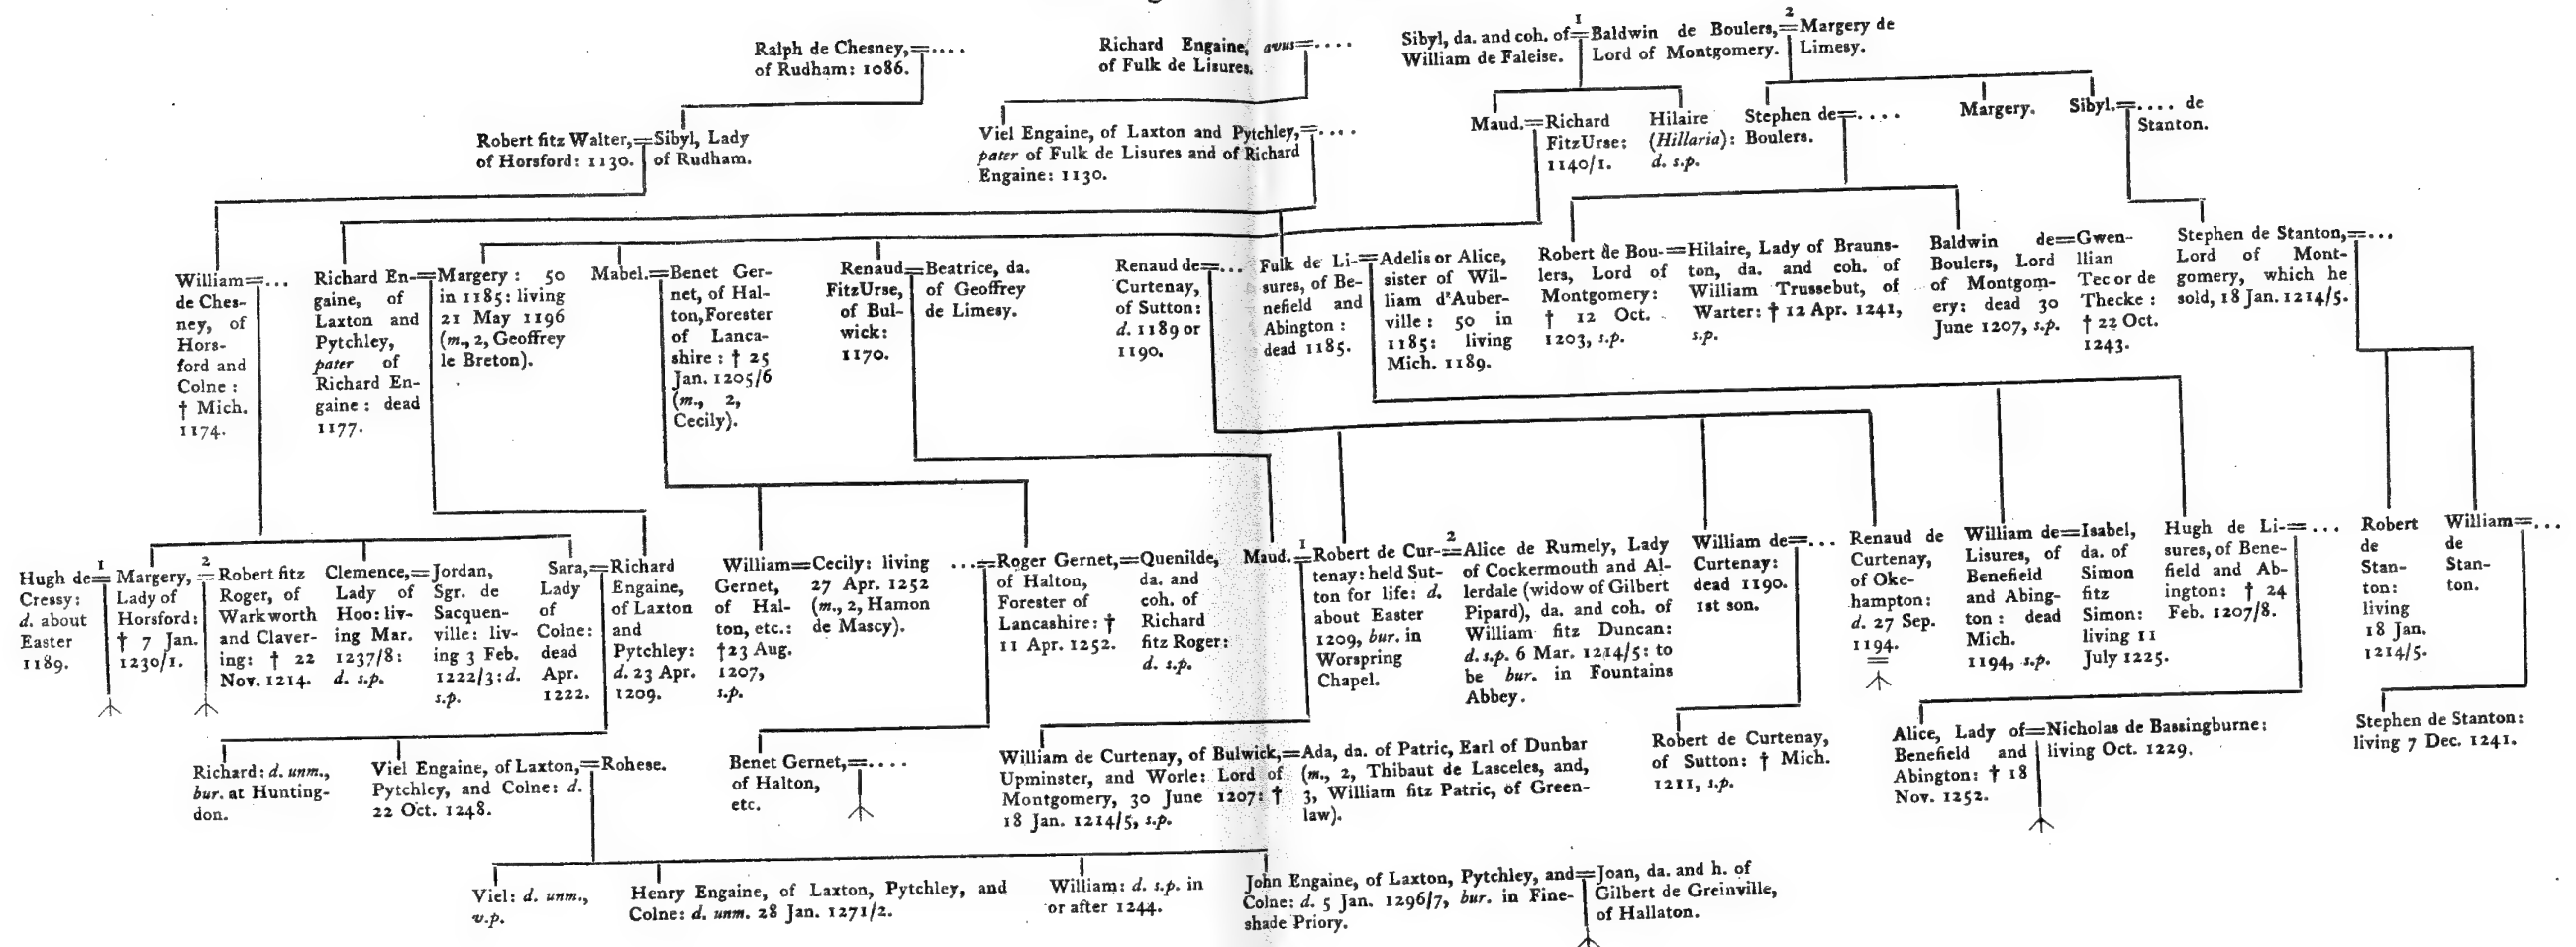 Ralph de Chesney,=....
of Rudham: 1086.
Richard Engaine, avus=....
of Fulk de Lisures.
Sibyl, da. and coh. of
William de Faleise.
1
=Baldwin de Boulers,
Lord of Montgomery.
2
=Margery de
Limesy.
Robert fitz Walter,
of Horsford: 1130.
=Sibyl, Lady
of Rudham.
Viel Engaine, of Laxton and Pytchley,=....
pater of Fulk de Lisures and of Richard
Engaine: 1130.
Maud.
=Richard
FitzUrse;
1140/1.
Hilaire
(Hillaria):
d. s.p.
Stephen de=....
Boulers.
Margery.
Sibyl.=.... de
Stanton.
William=...
de Ches-
ney, of
Hors-
ford and
Colne:
† Mich.
1174.
Richard En-
gaine, of
Laxton and
Pytchley,
pater of
Richard En-
gaine: dead
1177.
=Margery: 50
in 1185: living
21 May 1196
(m., 2, Geoffrey
le Breton).
Mabel.
=Benet Ger-
net, of Hal-
ton, Forester
of Lanca-
shire: † 25
Jan. 1205/6
(m., 2,
Cecily).
Renaud
FitzUrse,
of Bul-
wick:
1170.
=Beatrice, da.
of Geoffrey
de Limesy.
Renaud de=...
Curtenay,
of Sutton:
d. 1189 or
1190.
Fulk de Li-
sures, of Be-
nefield and
Abington:
dead 1185.
=Adelis or Alice,
sister of Wil-
liam d'Auber-
ville: 50 in
1185: living
Mich. 1189.
Robert de Bou-
lers, Lord of
Montgomery:
† 12 Oct.
1203, s.p.
=Hilaire, Lady of Brauns-
ton, da. and coh. of
William Trussebut, of
Warter: † 12 Apr. 1241,
s.p.
Baldwin de
Boulers, Lord
of Montgom-
ery: dead 30
June 1207, s.p.
=Gwen-
llian
Tec or de
Thecke:
† 22 Oct.
1243.
Stephen de Stanton,=...
Lord of Mont-
gomery, which he
sold, 18 Jan. 1214/5.
Hugh de
Cressy:
d. about
Easter
1189.
1
=Margery,
Lady of
Horsford:
† 7 Jan.
1230/1.
2
=Robert fitz
Roger, of
Warkworth
and Claver-
ing: † 22
Nov. 1214.
Clemence,
Lady of
Hoo: liv-
ing Mar.
1237/8:
d. s.p.
=Jordan,
Sgr. de
Sacquen-
ville: liv-
ing 3 Feb.
1222/3: d.
s.p.
Sara,
Lady
of
Colne:
dead
Apr.
1222.
=Richard
Engaine,
of Laxton
and
Pytchley:
d. 23 Apr.
1209.
William
Gernet,
of Hal-
ton, etc.:
†23 Aug.
1207,
s.p.
=Cecily: living
27 Apr. 1252
(m., 2, Hamon
de Mascy).
...=Roger Gernet,
of Halton,
Forester of
Lancashire: †
11 Apr. 1252.
=Quenilde,
da. and
coh. of
Richard
fitz Roger:
d. s.p.
Maud.
1
=Robert de Cur-
tenay: held Sut-
ton for life: d.
about Easter
1209, bur. in
Worspring
Chapel.
2
=Alice de Rumely, Lady
of Cockermouth and Al-
lerdale (widow of Gilbert
Pipard), da. and coh. of
William fitz Duncan:
d. s.p. 6 Mar. 1214/5: to
be bur. in Fountains
Abbey.
William de=...
Curtenay:
dead 1190.
1st son.
Renaud de
Curtenay,
of Oke-
hampton:
d. 27 Sep.
1194.
=
William de
Lisures, of
Benefield
and Abing-
ton: dead
Mich.
1194, s.p.
=Isabel,
da. of
Simon
fitz
Simon:
living 11
July 1225.
Hugh de Li-=...
sures, of Bene-
field and Ab-
ington: † 24
Feb. 1207/8.
Robert
de
Stan-
ton:
living
18 Jan.
1214/5.
William=...
de
Stan-
ton.
Richard: d. unm.,
bur. at Hunting-
don.
Viel Engaine, of Laxton,
Pytchley, and Colne: d.
22 Oct. 1248.
=Rohese.
Benet Gernet,=....
of Halton,
etc.
William de Curtenay, of Bulwick,
Upminster, and Worle: Lord of
Montgomery, 30 June 1207: †
18 Jan. 1214/5, s.p.
=Ada, da. of Patric, Earl of Dunbar
(m., 2, Thibaut de Lasceles, and,
3, William fitz Patric, of Green-
law).
Robert de Curtenay,
of Sutton: † Mich.
1211, s.p.
Alice, Lady of
Benefield and
Abington: † 18
Nov. 1252.
=Nicholas de Bassingburne:
living Oct. 1229.
Stephen de Stanton:
living 7 Dec. 1241.
Viel: d. unm.,
v.p.
Henry Engaine, of Laxton, Pytchley, and
Colne: d. unm. 28 Jan. 1271/2.
William: d. s.p. in
or after 1244.
John Engaine, of Laxton, Pytchley, and
Colne: d. 5 Jan. 1296/7, bur. in Fine-
shade Priory.
=Joan, da. and h. of
Gilbert de Greinville,
of Hallaton.